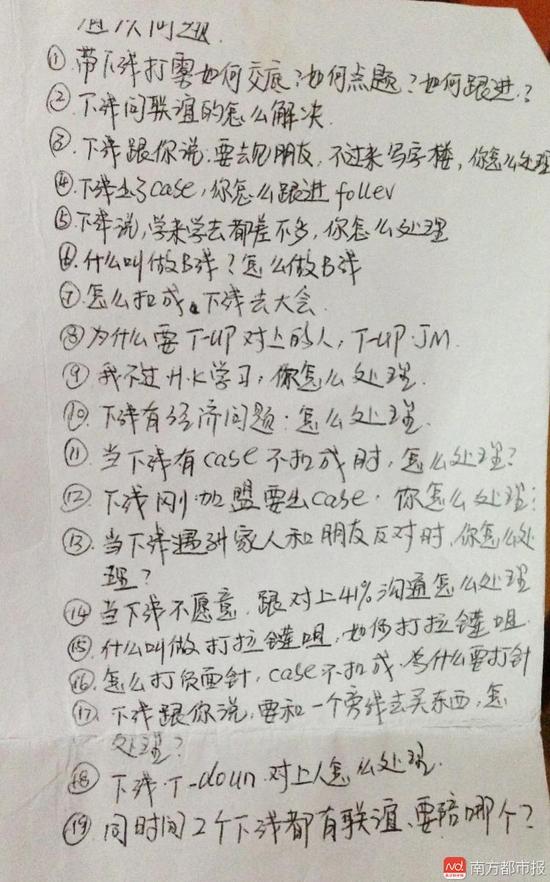 问题
①带下线打雾如何交底?如何点题?如何跟进?
②下线问联谊的怎么解决.
③.下线跟你说.要去见朋友,不过来写字楼,你怎么处理
④下线出了case,你怎么跟进follev
⑤下线说,学来学去都差不多,你怎么处理
⑥.什么叫做B线?怎么做B线
⑦怎么扣成 下线去大会.
⑧为什么要T-UP对上的人,T-UP.JM.
⑨.我不过H.K学习,你怎么处理.
⑩.下线有经济问题.怎么处理.
⑪.当下线有case不扣成时,怎么处理?
⑫.下线刚加盟要出case.你怎么处理?
⑬.当下线遇到家人和朋友反对时,你怎么处
理?
⑭当下线不愿意.跟对上41%沟通怎么处理
⑮.什么叫做打拉链咀.如何打拉链咀.
⑯.怎么打负面针,case不扣成.为什么要打针
⑰.下线跟你说,要和一个旁线去买东西,怎
处理?
⑱.下线.T-doun.对上人怎么处理.
⑲.同时间2个下线都有联谊、要陪哪个?
Nd.
南方都市报